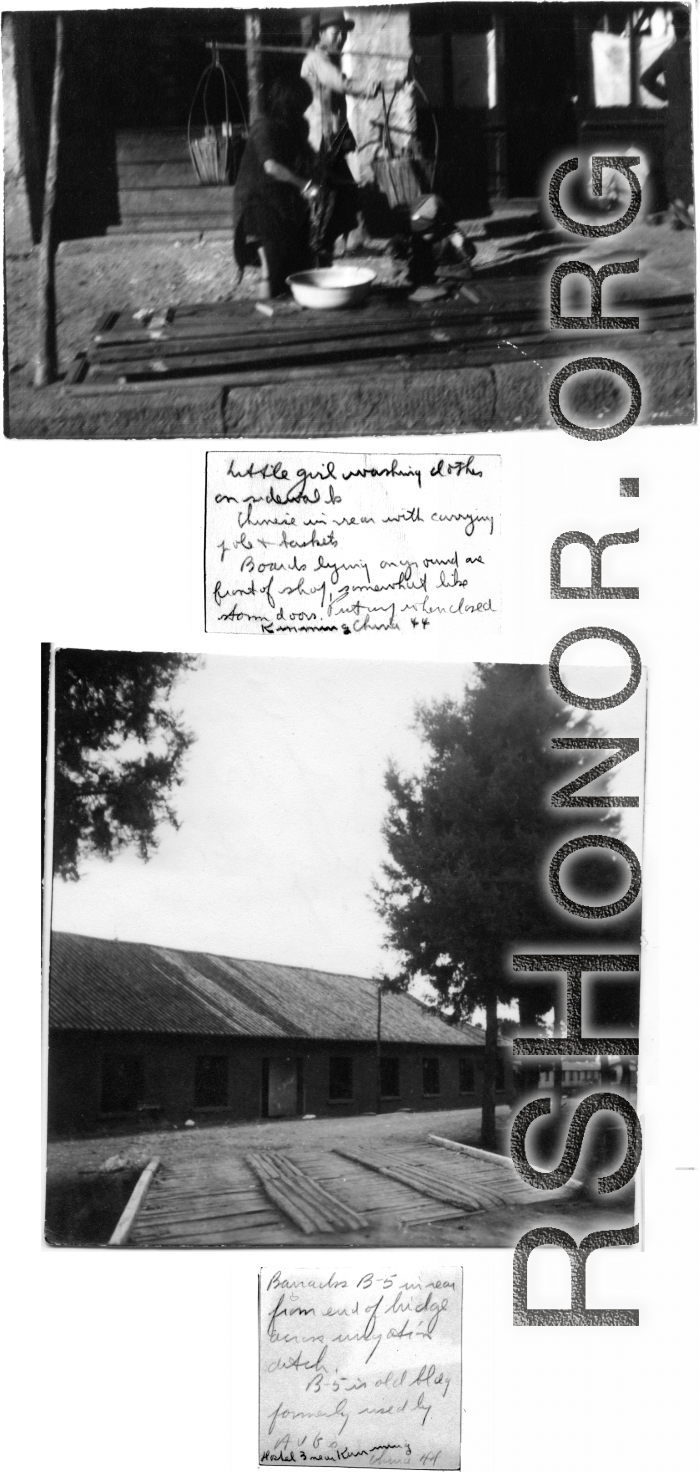 Little girl washing clothes
on sidewalk
Chinese in rear with carrying
pole & baskets
Boards lying on ground are
front of shop, somewhat like
storm doors. Put up when closed
Kunming China 44
Barracks B-5 in rear
from end of bridge
across irrigation
ditch.
B-5 is old bldg
formerly used by
AVG
Hostel 3 near Kunming
China 44
RSHONOR.ORG